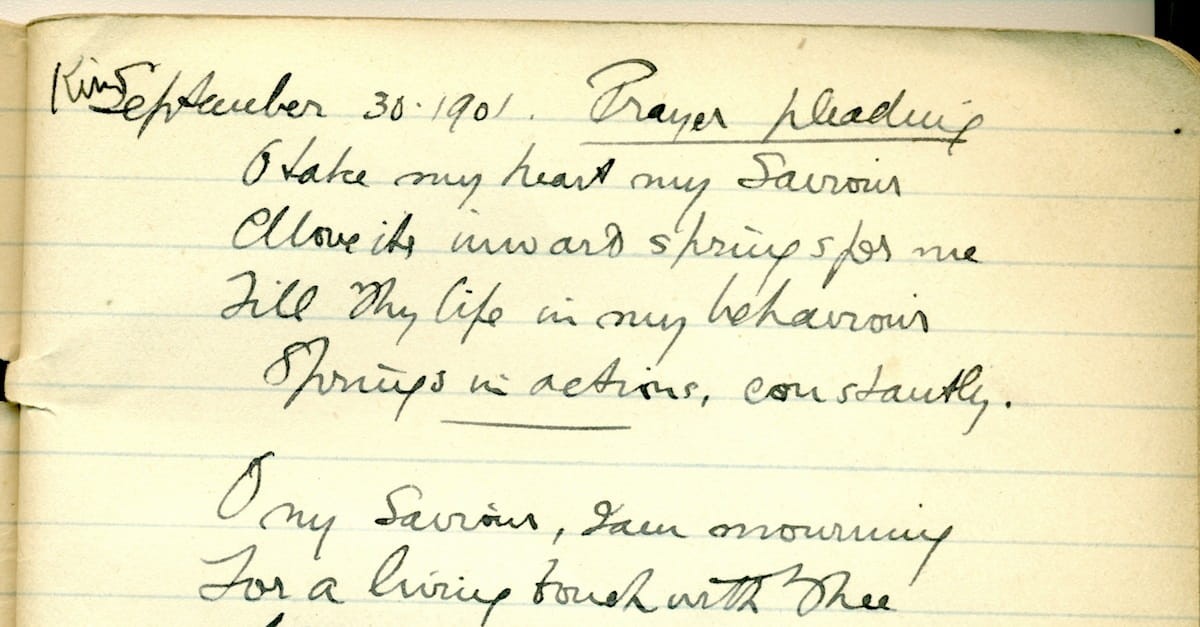 Kind September 30. 1901. Prayer pleading
O take my heart my Saviour
Move its inward springs for me
Till Thy life in my behaviour
Springs in actions, constantly.
O my Saviour, I am mourning
For a living touch with Thee